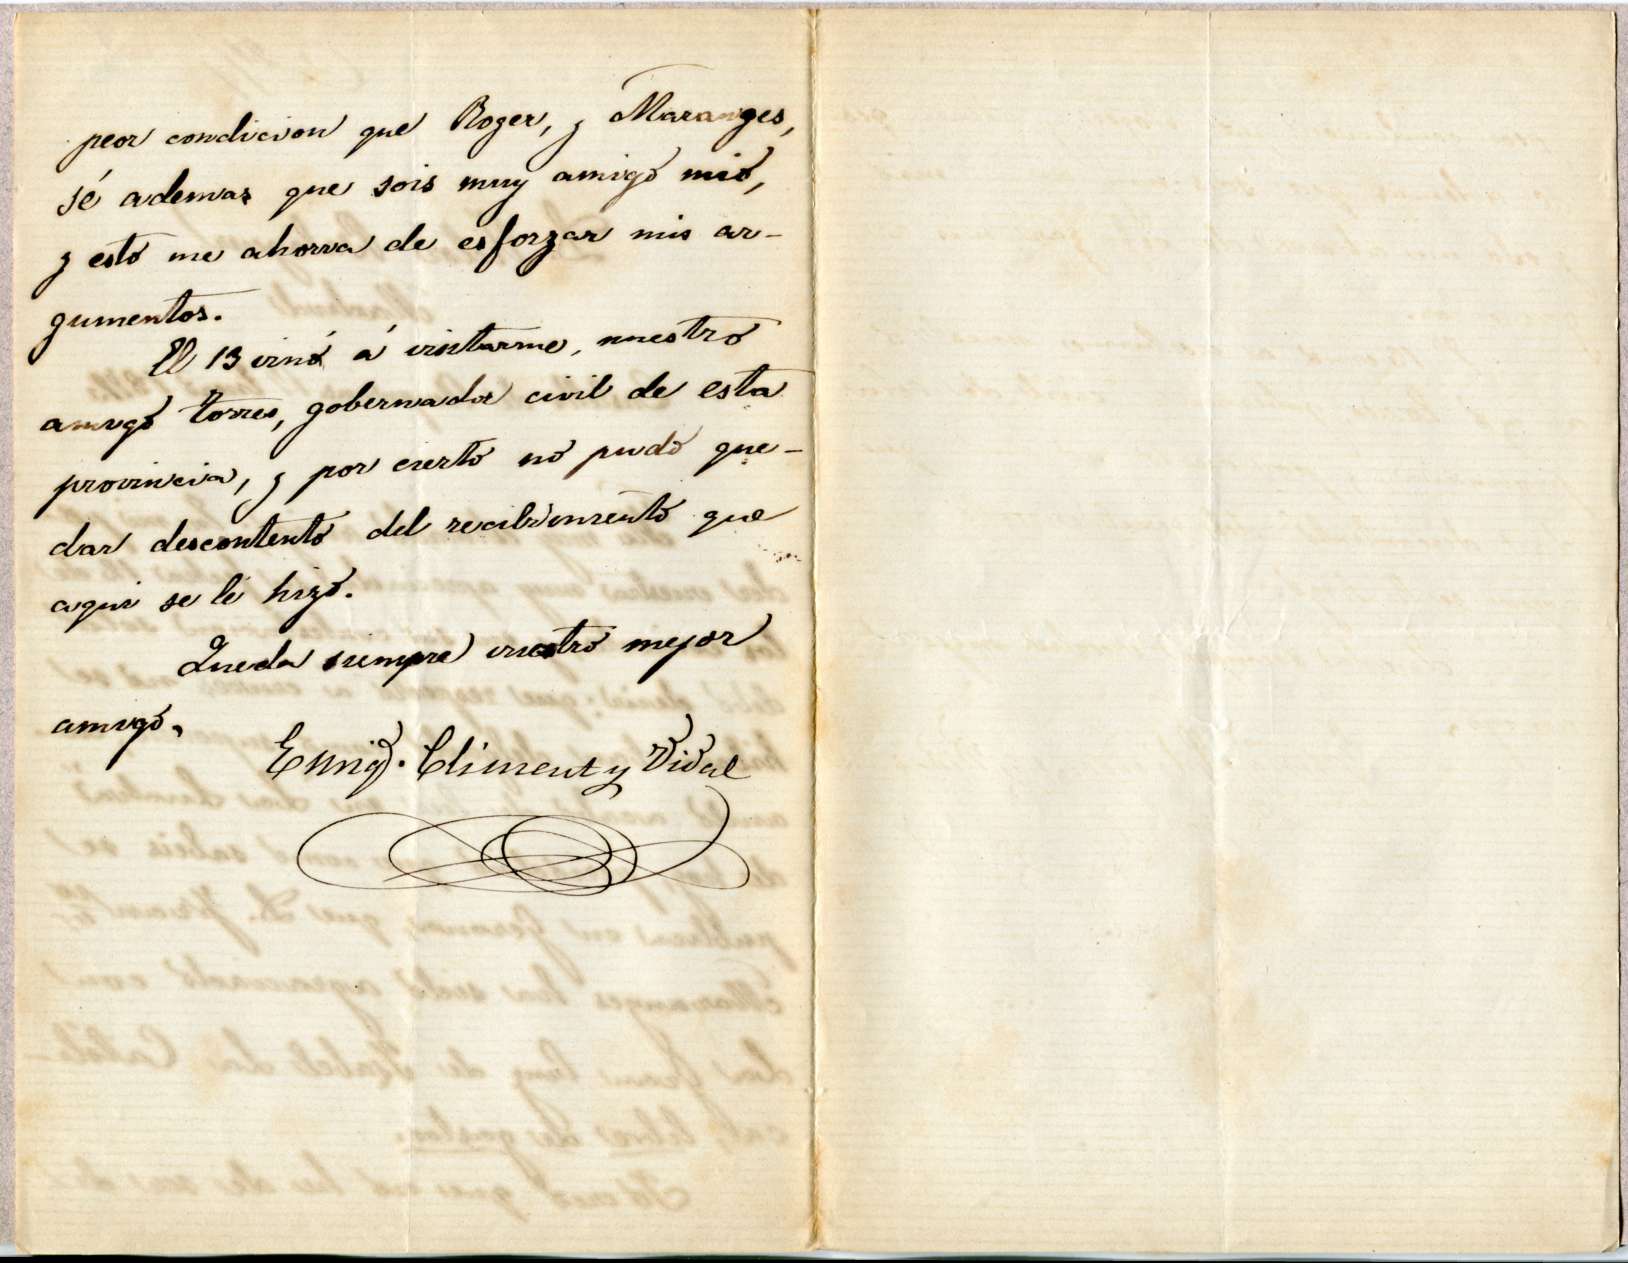 peor condicion que Roger, y Maranges,
sé ademas que sois muy amigo mio,
y esto me ahorra de esforzar mis ar-
gumentos.
El 13 vino á visitarme, nuestro
amigo Torres, gobernador civil de esta
provincia, y por cierto no pudo que-
dar descontento del recibimiento que
aqui se le hizo.
Queda siempre vuestro mejor
amigo,
Climent y Vidal